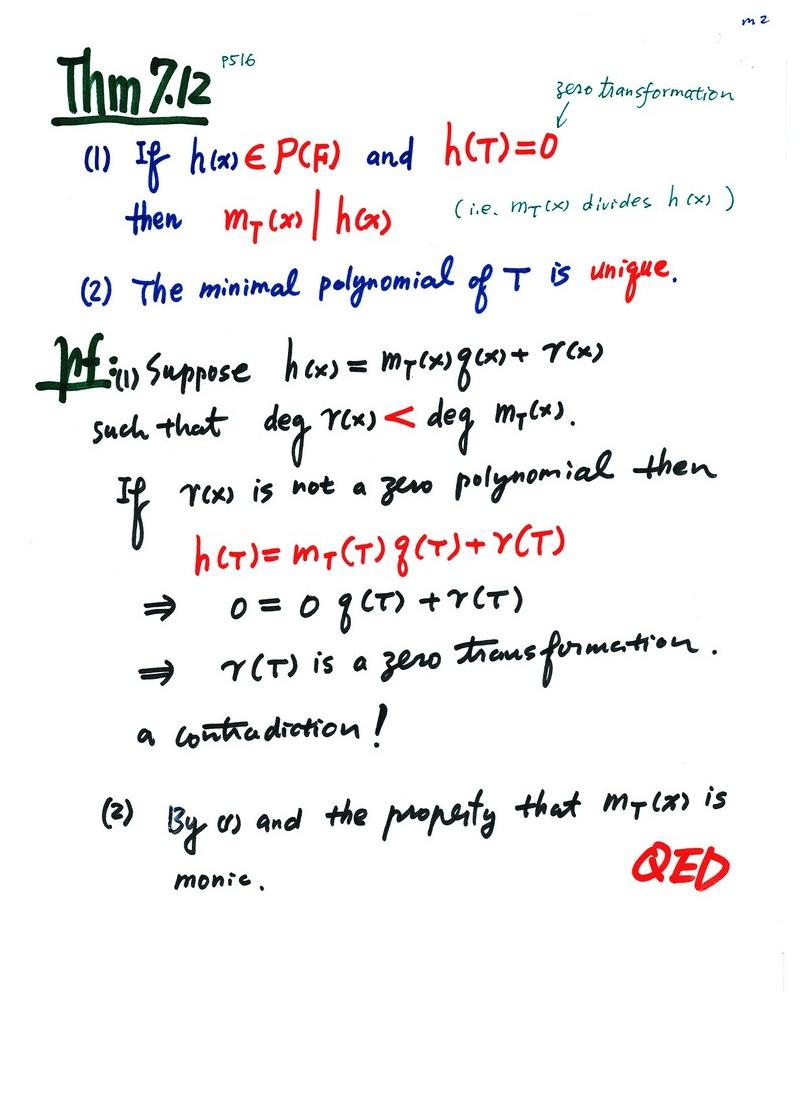 m2
Thm 7.12 p516
zero transformation
(1) If h(x) ∈ P(F) and h(T)=0
then m_T(x) | h(x) (i.e. m_T(x) divides h(x) )
(2) The minimal polynomial of T is unique.
pf: (1) Suppose h(x) = m_T(x)q(x) + r(x)
such that deg r(x) < deg m_T(x).
If r(x) is not a zero polynomial then
h(T) = m_T(T) q(T) + r(T)
⇒ 0 = 0 q(T) + r(T)
⇒ r(T) is a zero transformation.
a contradiction!
(2) By (1) and the property that m_T(x) is
monic. QED